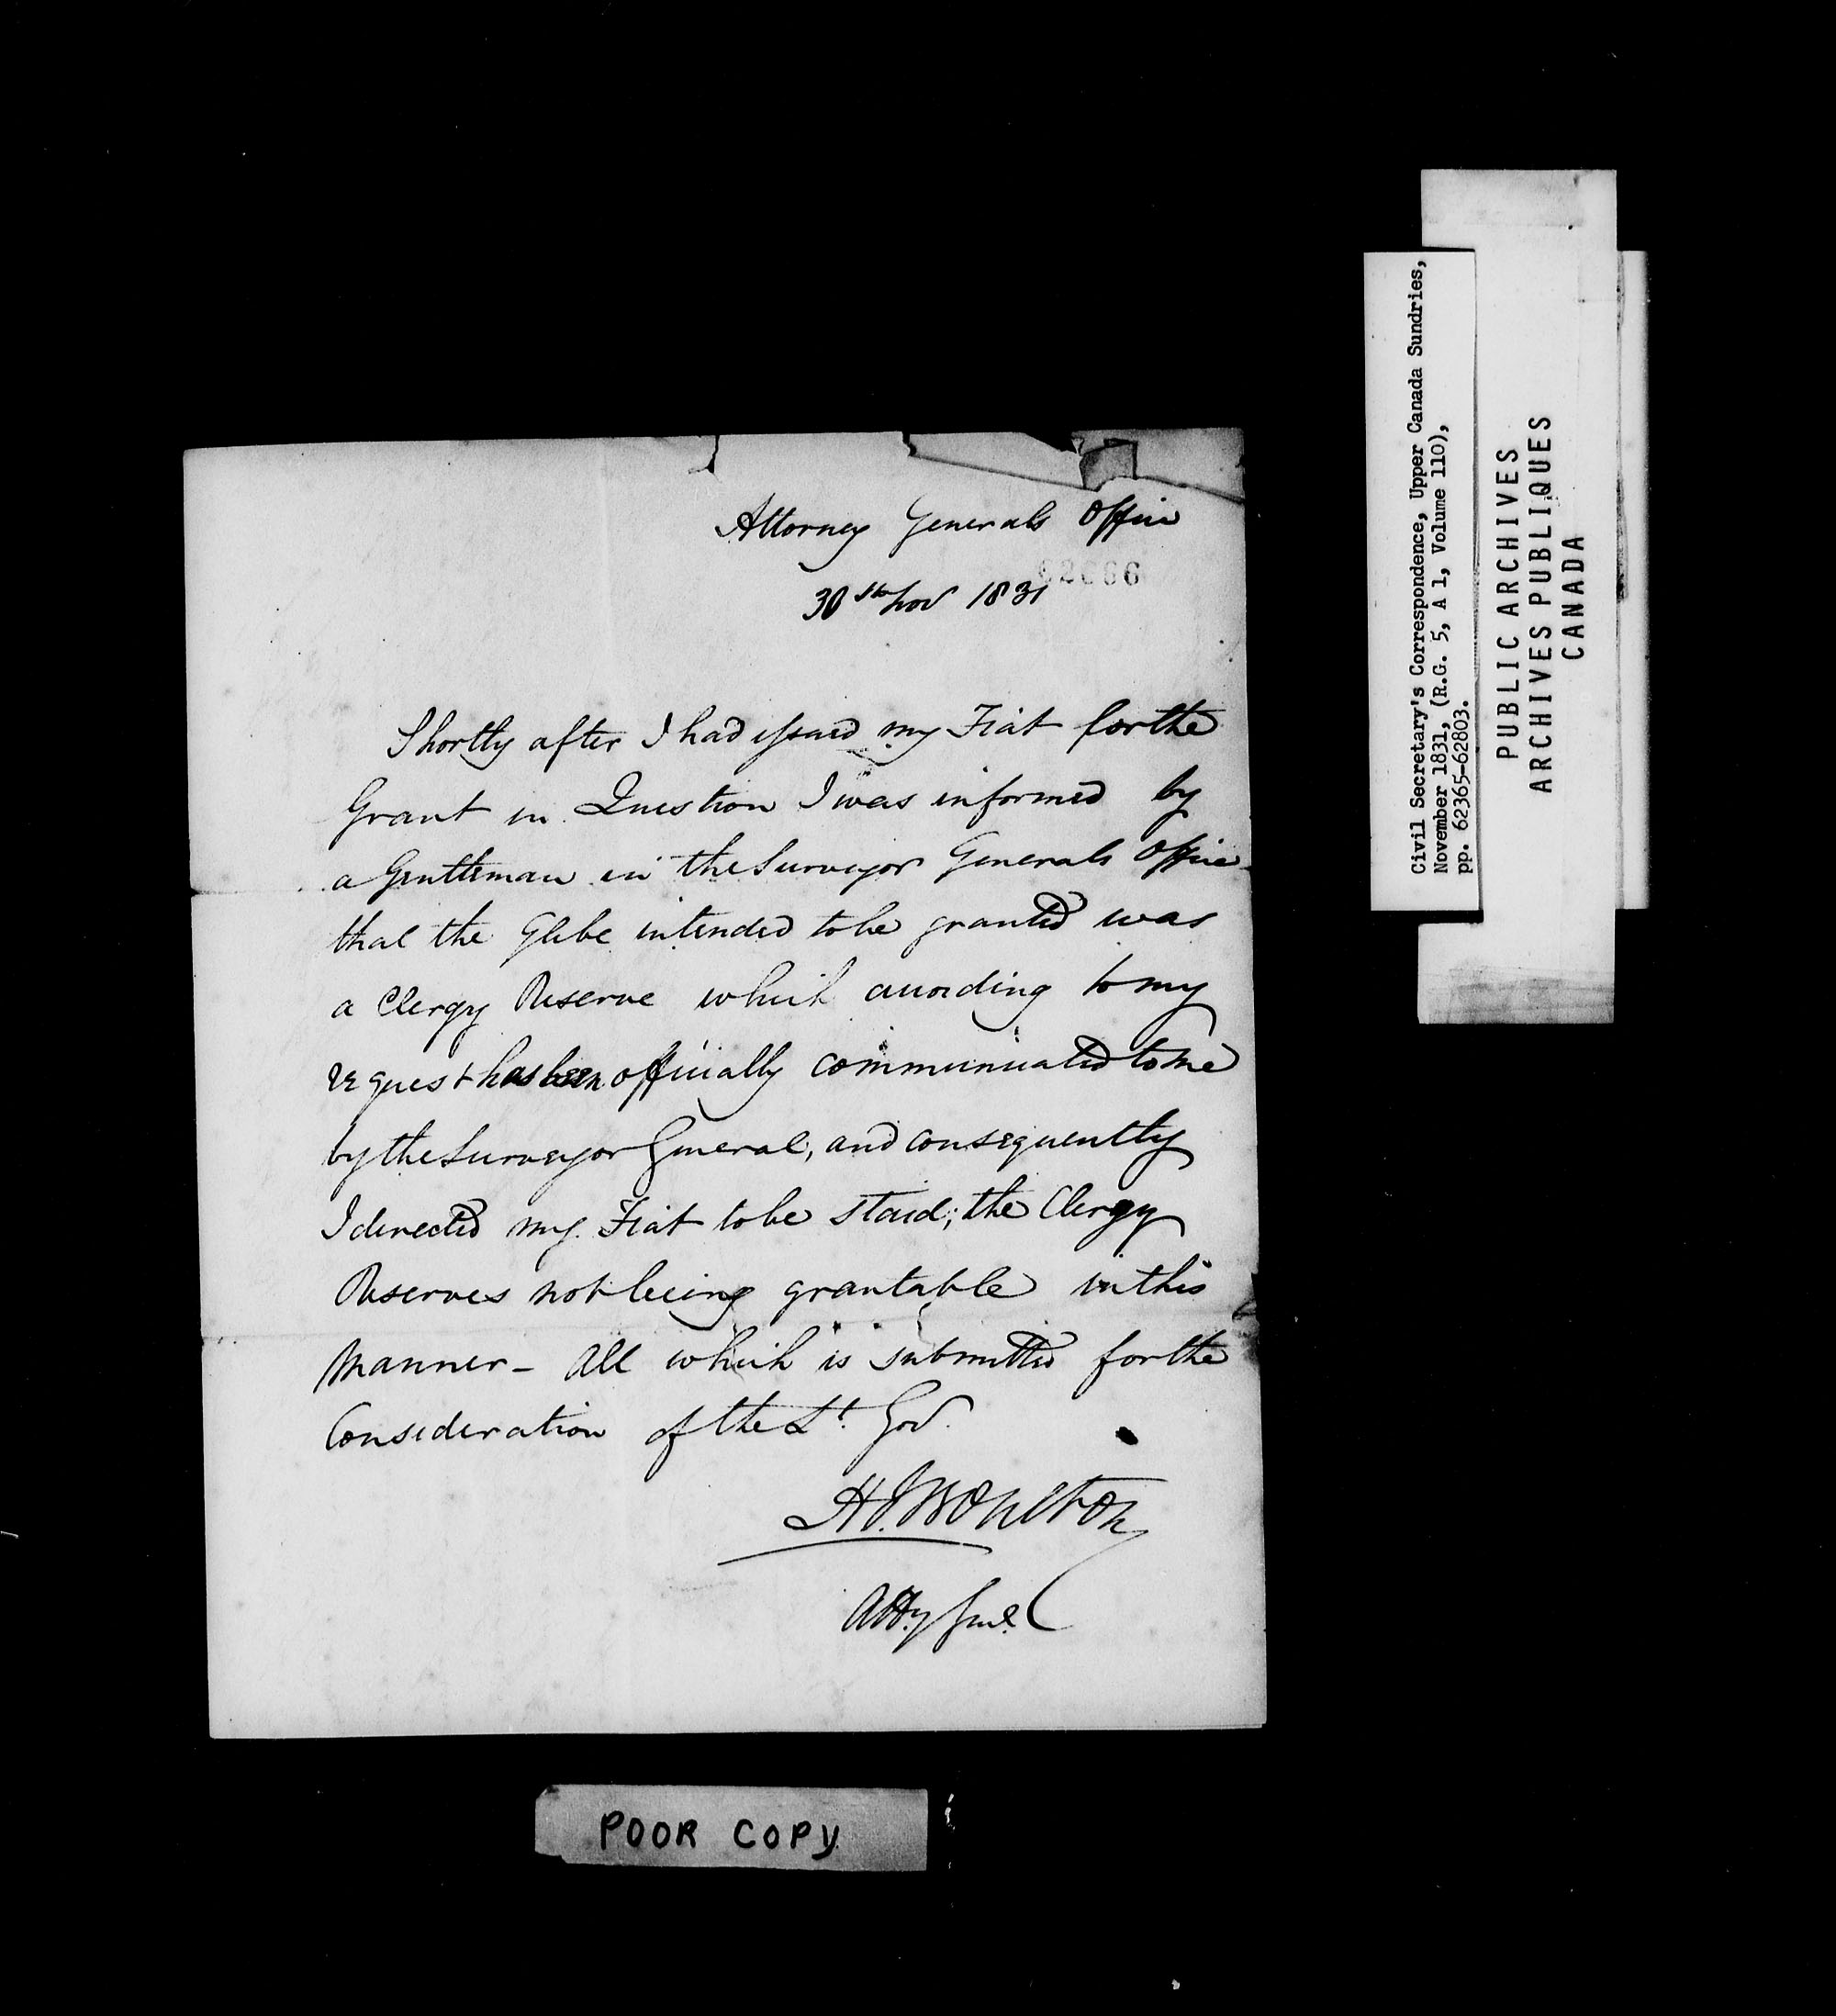 Attorney Generals Office
30th Nov 1831
Shortly after I had issued my Fiat for the
Grant in Question I was informed by
a Gentleman in the Surveyor Generals Office
that the Glebe intended to be granted was
a Clergy Reserve which according to my
request has been officially communicated to me
by the Surveyor General, and consequently
I directed my Fiat to be staid; the Clergy
Reserves not being grantable in this
Manner - All which is submitted for the
Consideration of the Lt. Gov.
H J Boulton
Atty Genl.
POOR COPY
Civil Secretary's Correspondence, Upper Canada Sundries,
November 1831, (R.G. 5, A 1, Volume 110),
pp. 62365-62803.
PUBLIC ARCHIVES
ARCHIVES PUBLIQUES
CANADA